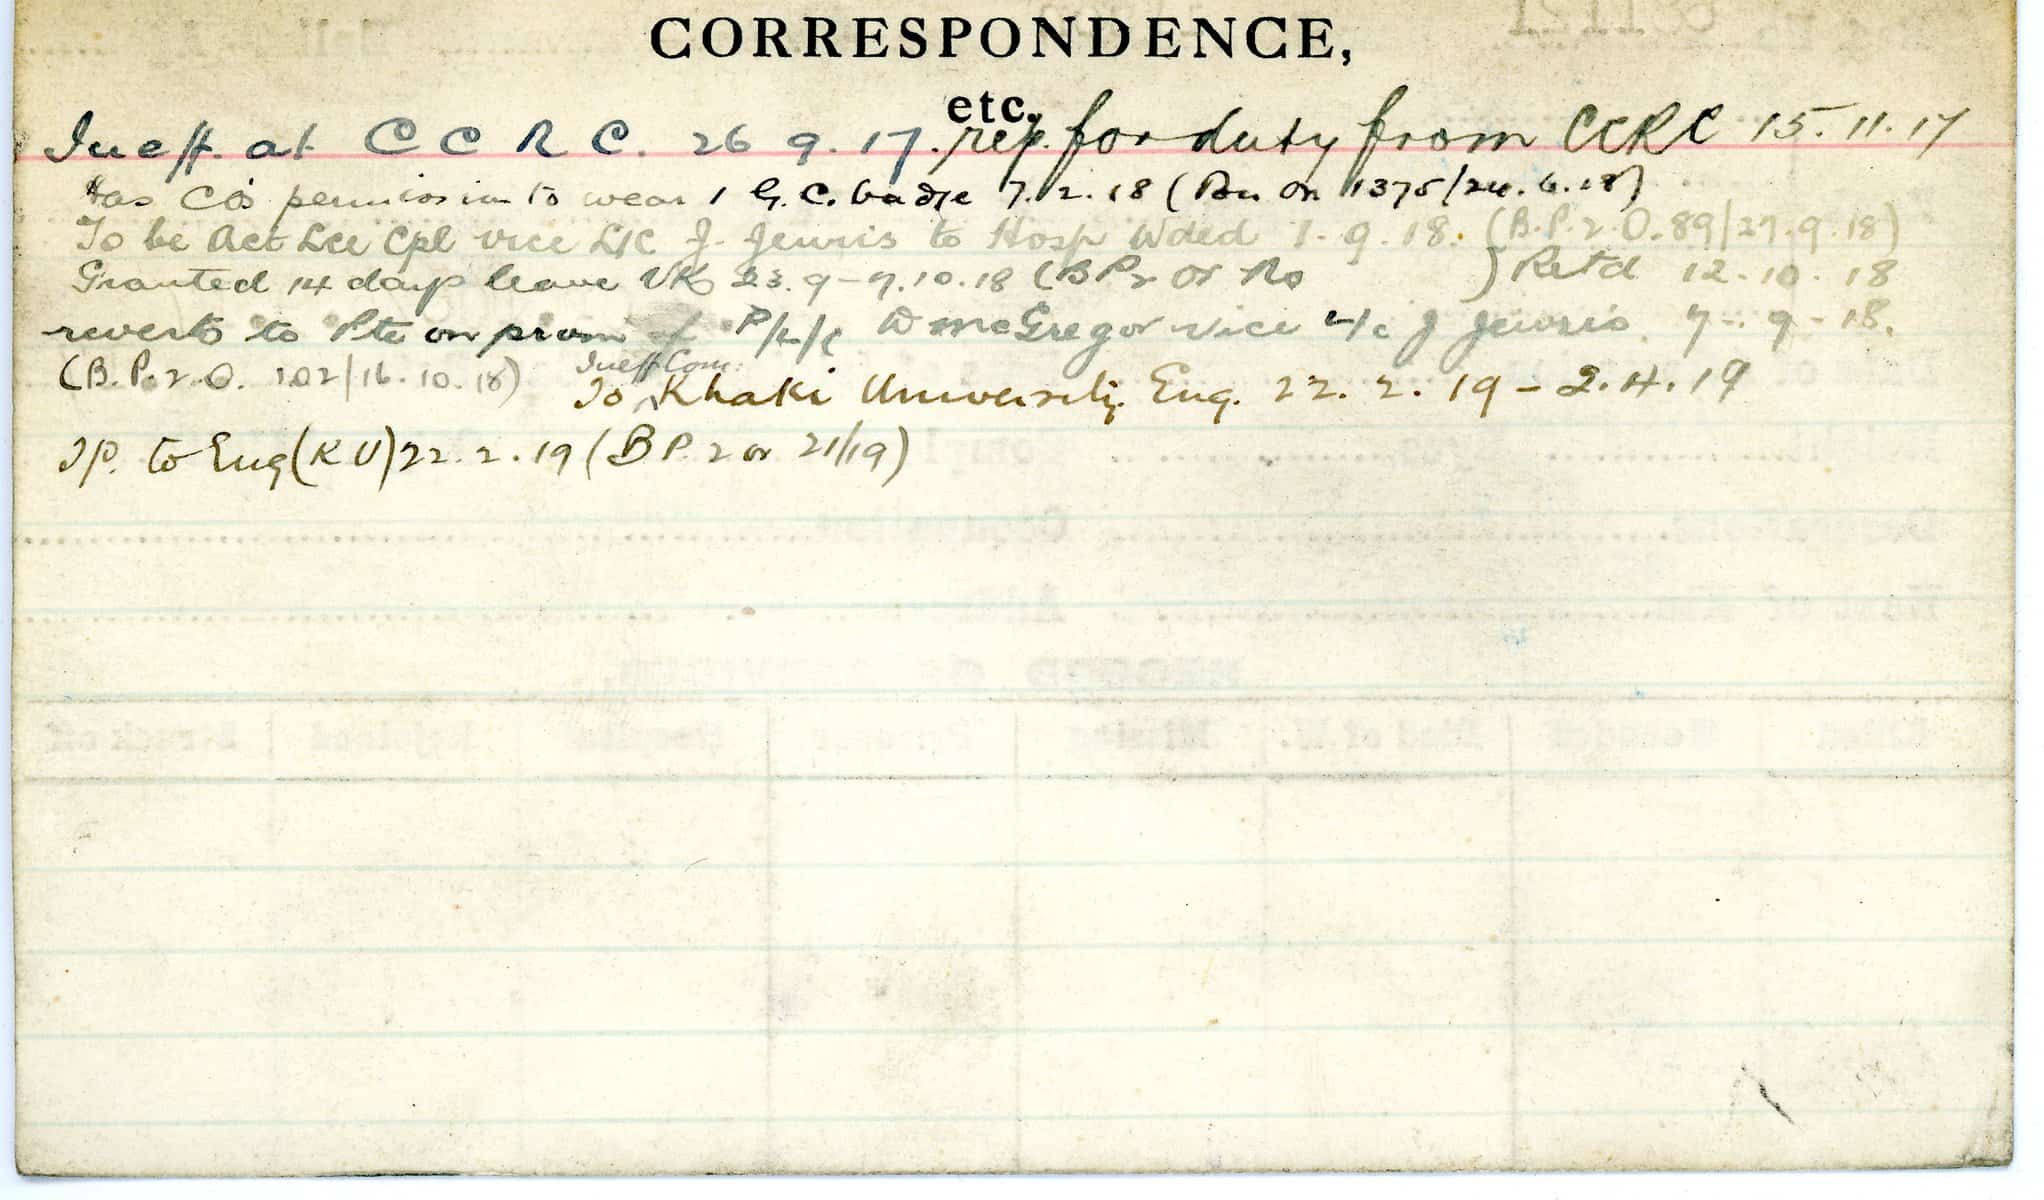 CORRESPONDENCE,
etc.
Ineff. at C C R C. 26 9. 17. rep. for duty from CCRC 15.11.17
Has CO's permission to wear 1 G. C. badge 7.2.18 (Bn On 1375/24.6.18)
To be Act Lce Cpl vice L/C J. Jewris to Hosp Wded 1.9.18. (B.P.2.O.89/27.9.18)
Granted 14 days leave UK 23.9-7.10.18 (BP2 Or No ) Retd 12.10.18
reverts to Pte on prom of P/L/C D McGregor vice L/c J Jewris 7-9-18.
(B.P.2.O. 102/16.10.18) Ineff Com.
To Khaki University. Eng. 22.2.19 - 2.4.19
T/P. to Eng (K U) 22.2.19 (B P. 2 or 21/19)